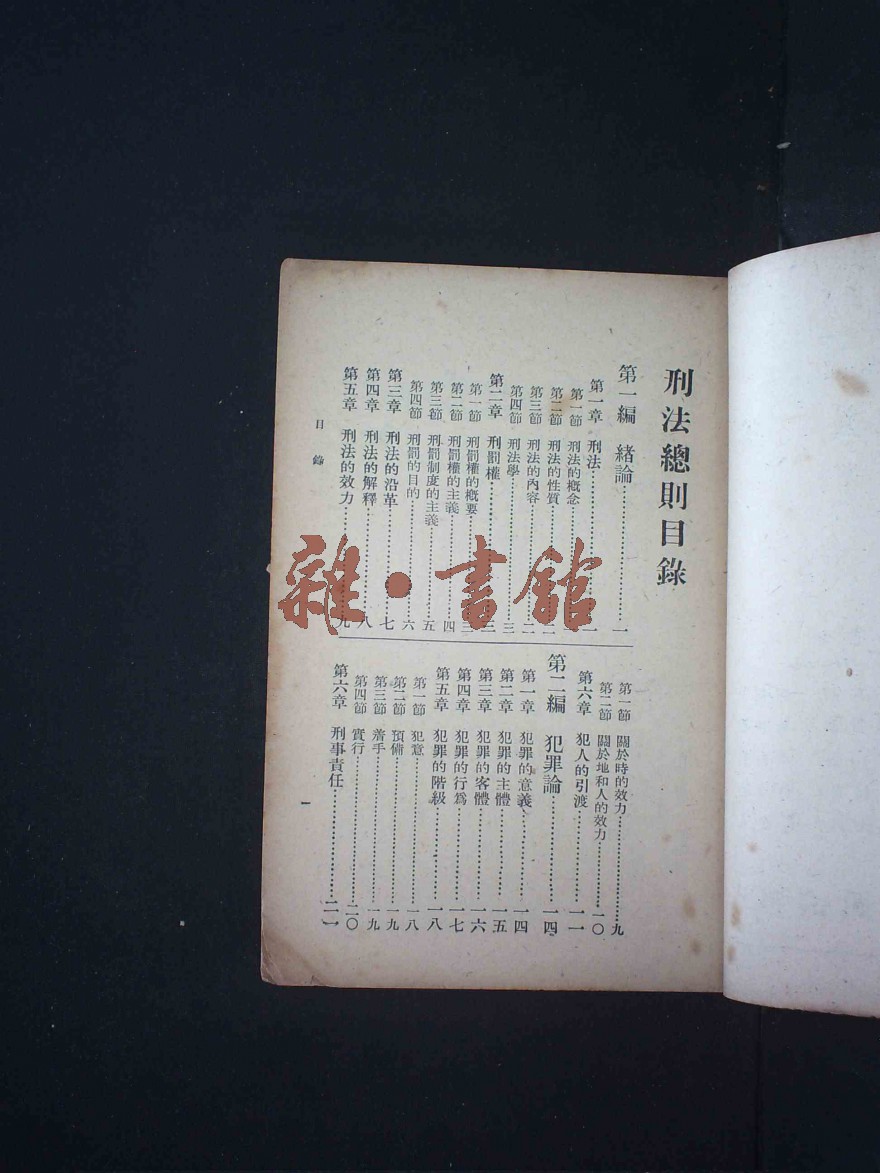 刑法總則目錄
第一編 緒論……………一
第一章 刑法……………一
第一節 刑法的概念……………
第二節 刑法的性質……………二
第三節 刑法的內容……………二
第四節 刑法學……………三
第二章 刑罰權……………三
第一節 刑罰權的概要……………三
第二節 刑罰權的主義……………四
第三節 刑罰制度的主義……………五
第四節 刑罰的目的……………六
第三章 刑法的沿革……………七
第四章 刑法的解釋……………八
第五章 刑法的效力……………九
第一節 關於時的效力……………九
第二節 關於地和人的效力……………一〇
第六章 犯人的引渡……………一一
第二編 犯罪論……………一四
第一章 犯罪的意義……………一四
第二章 犯罪的主體……………一五
第三章 犯罪的客體……………一六
第四章 犯罪的行為……………一七
第五章 犯罪的階級……………一八
第一節 犯意……………一八
第二節 預備……………一九
第三節 着手……………一九
第四節 實行……………二〇
第六章 刑事責任……………二一
目錄
一
雜·書館